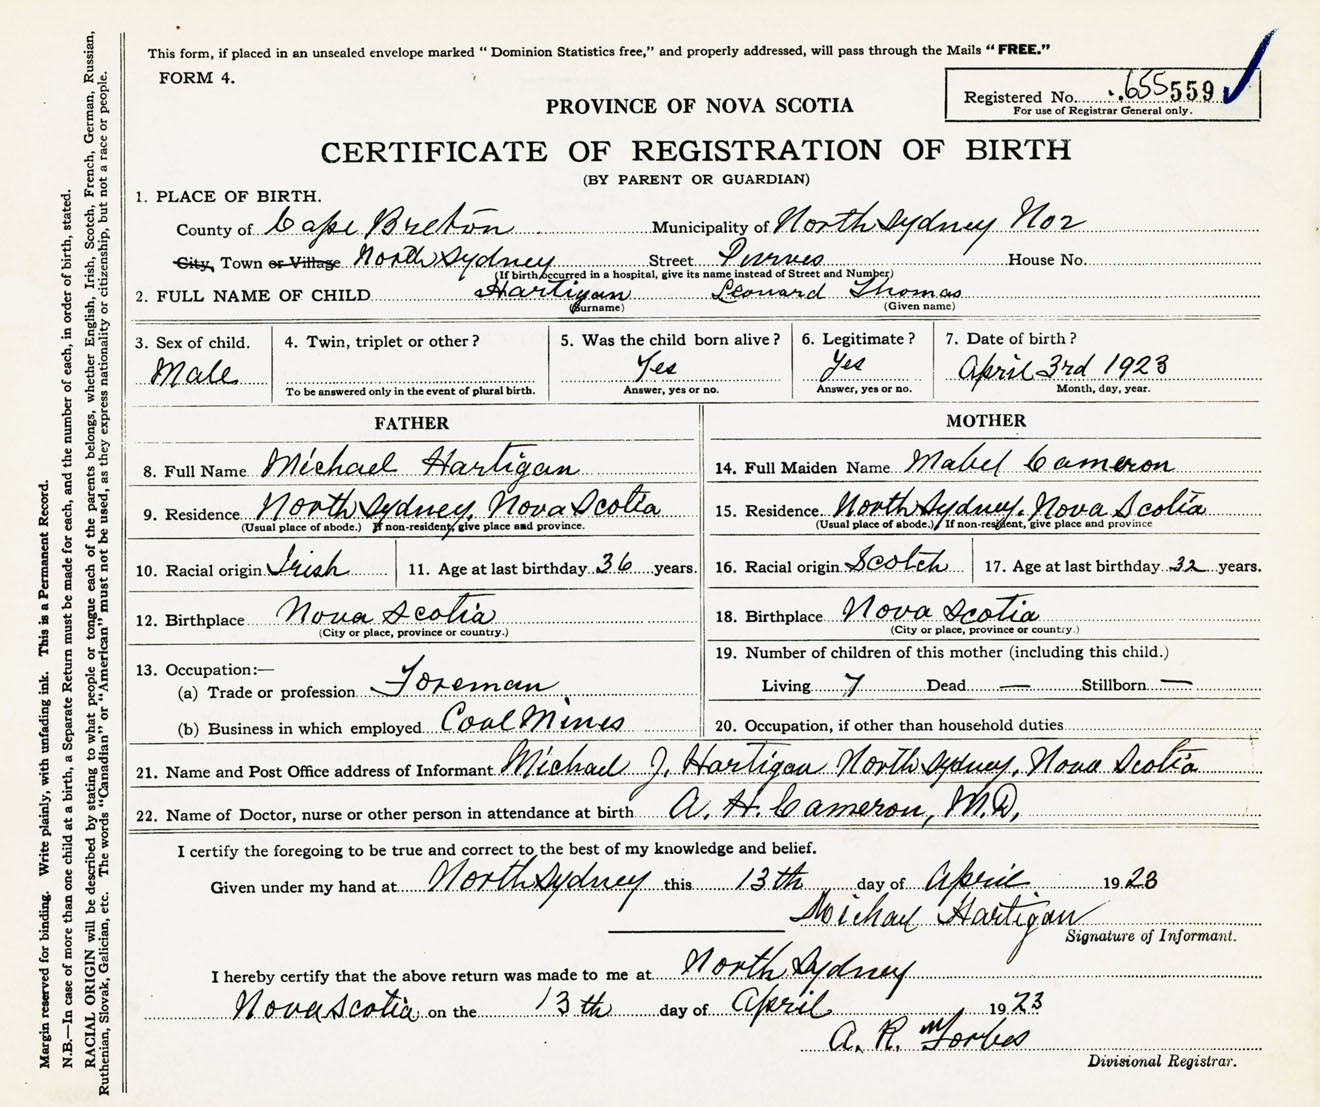 This form, if placed in an unsealed envelope marked "Dominion Statistics free," and properly addressed, will pass through the Mails "FREE."
FORM 4.
Registered No. 655559
For use of Registrar General only.
PROVINCE OF NOVA SCOTIA
CERTIFICATE OF REGISTRATION OF BIRTH
(BY PARENT OR GUARDIAN)
1. PLACE OF BIRTH.
County of Cape Breton Municipality of North Sydney No 2
City, Town or Village North Sydney Street Purves House No.
(If birth occurred in a hospital, give its name instead of Street and Number)
2. FULL NAME OF CHILD Hartigan Leonard Thomas
(Surname) (Given name)
3. Sex of child. 4. Twin, triplet or other? 5. Was the child born alive? 6. Legitimate? 7. Date of birth?
Male Yes Yes April 3rd 1923
To be answered only in the event of plural birth. Answer, yes or no. Answer, yes or no. Month, day, year.
FATHER
8. Full Name Michael Hartigan
9. Residence North Sydney, Nova Scotia
(Usual place of abode.) If non-resident, give place and province.
10. Racial origin Irish 11. Age at last birthday 36 years.
12. Birthplace Nova Scotia
(City or place, province or country.)
13. Occupation:—
(a) Trade or profession Foreman
(b) Business in which employed Coal Mines
MOTHER
14. Full Maiden Name Mabel Cameron
15. Residence North Sydney, Nova Scotia
(Usual place of abode.) If non-resident, give place and province
16. Racial origin Scotch 17. Age at last birthday 32 years.
18. Birthplace Nova Scotia
(City or place, province or country.)
19. Number of children of this mother (including this child.)
Living 7 Dead — Stillborn —
20. Occupation, if other than household duties
21. Name and Post Office address of Informant Michael J. Hartigan North Sydney, Nova Scotia
22. Name of Doctor, nurse or other person in attendance at birth A. H. Cameron, M.D.
I certify the foregoing to be true and correct to the best of my knowledge and belief.
Given under my hand at North Sydney this 13th day of April 1923
Michael Hartigan
Signature of Informant.
I hereby certify that the above return was made to me at North Sydney
Nova Scotia on the 13th day of April 1923
A. R. Forbes
Divisional Registrar.
Margin reserved for binding. Write plainly, with unfading ink. This is a Permanent Record.
N.B.—In case of more than one child at a birth, a Separate Return must be made for each, and the number of each, in order of birth, stated.
RACIAL ORIGIN will be described by stating to what people or tongue each of the parents belongs, whether English, Irish, Scotch, French, German, Russian,
Ruthenian, Slovak, Galician, etc. The words "Canadian" or "American" must not be used, as they express nationality or citizenship, but not a race or people.